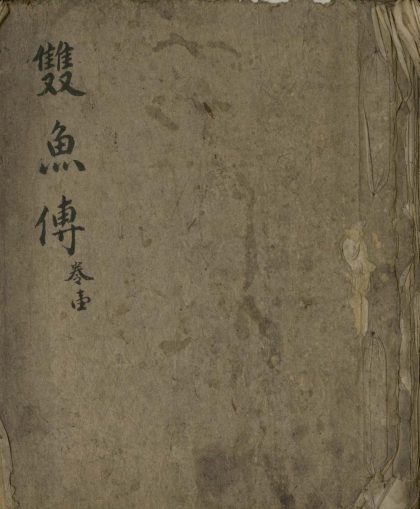 雙魚傳 卷壹